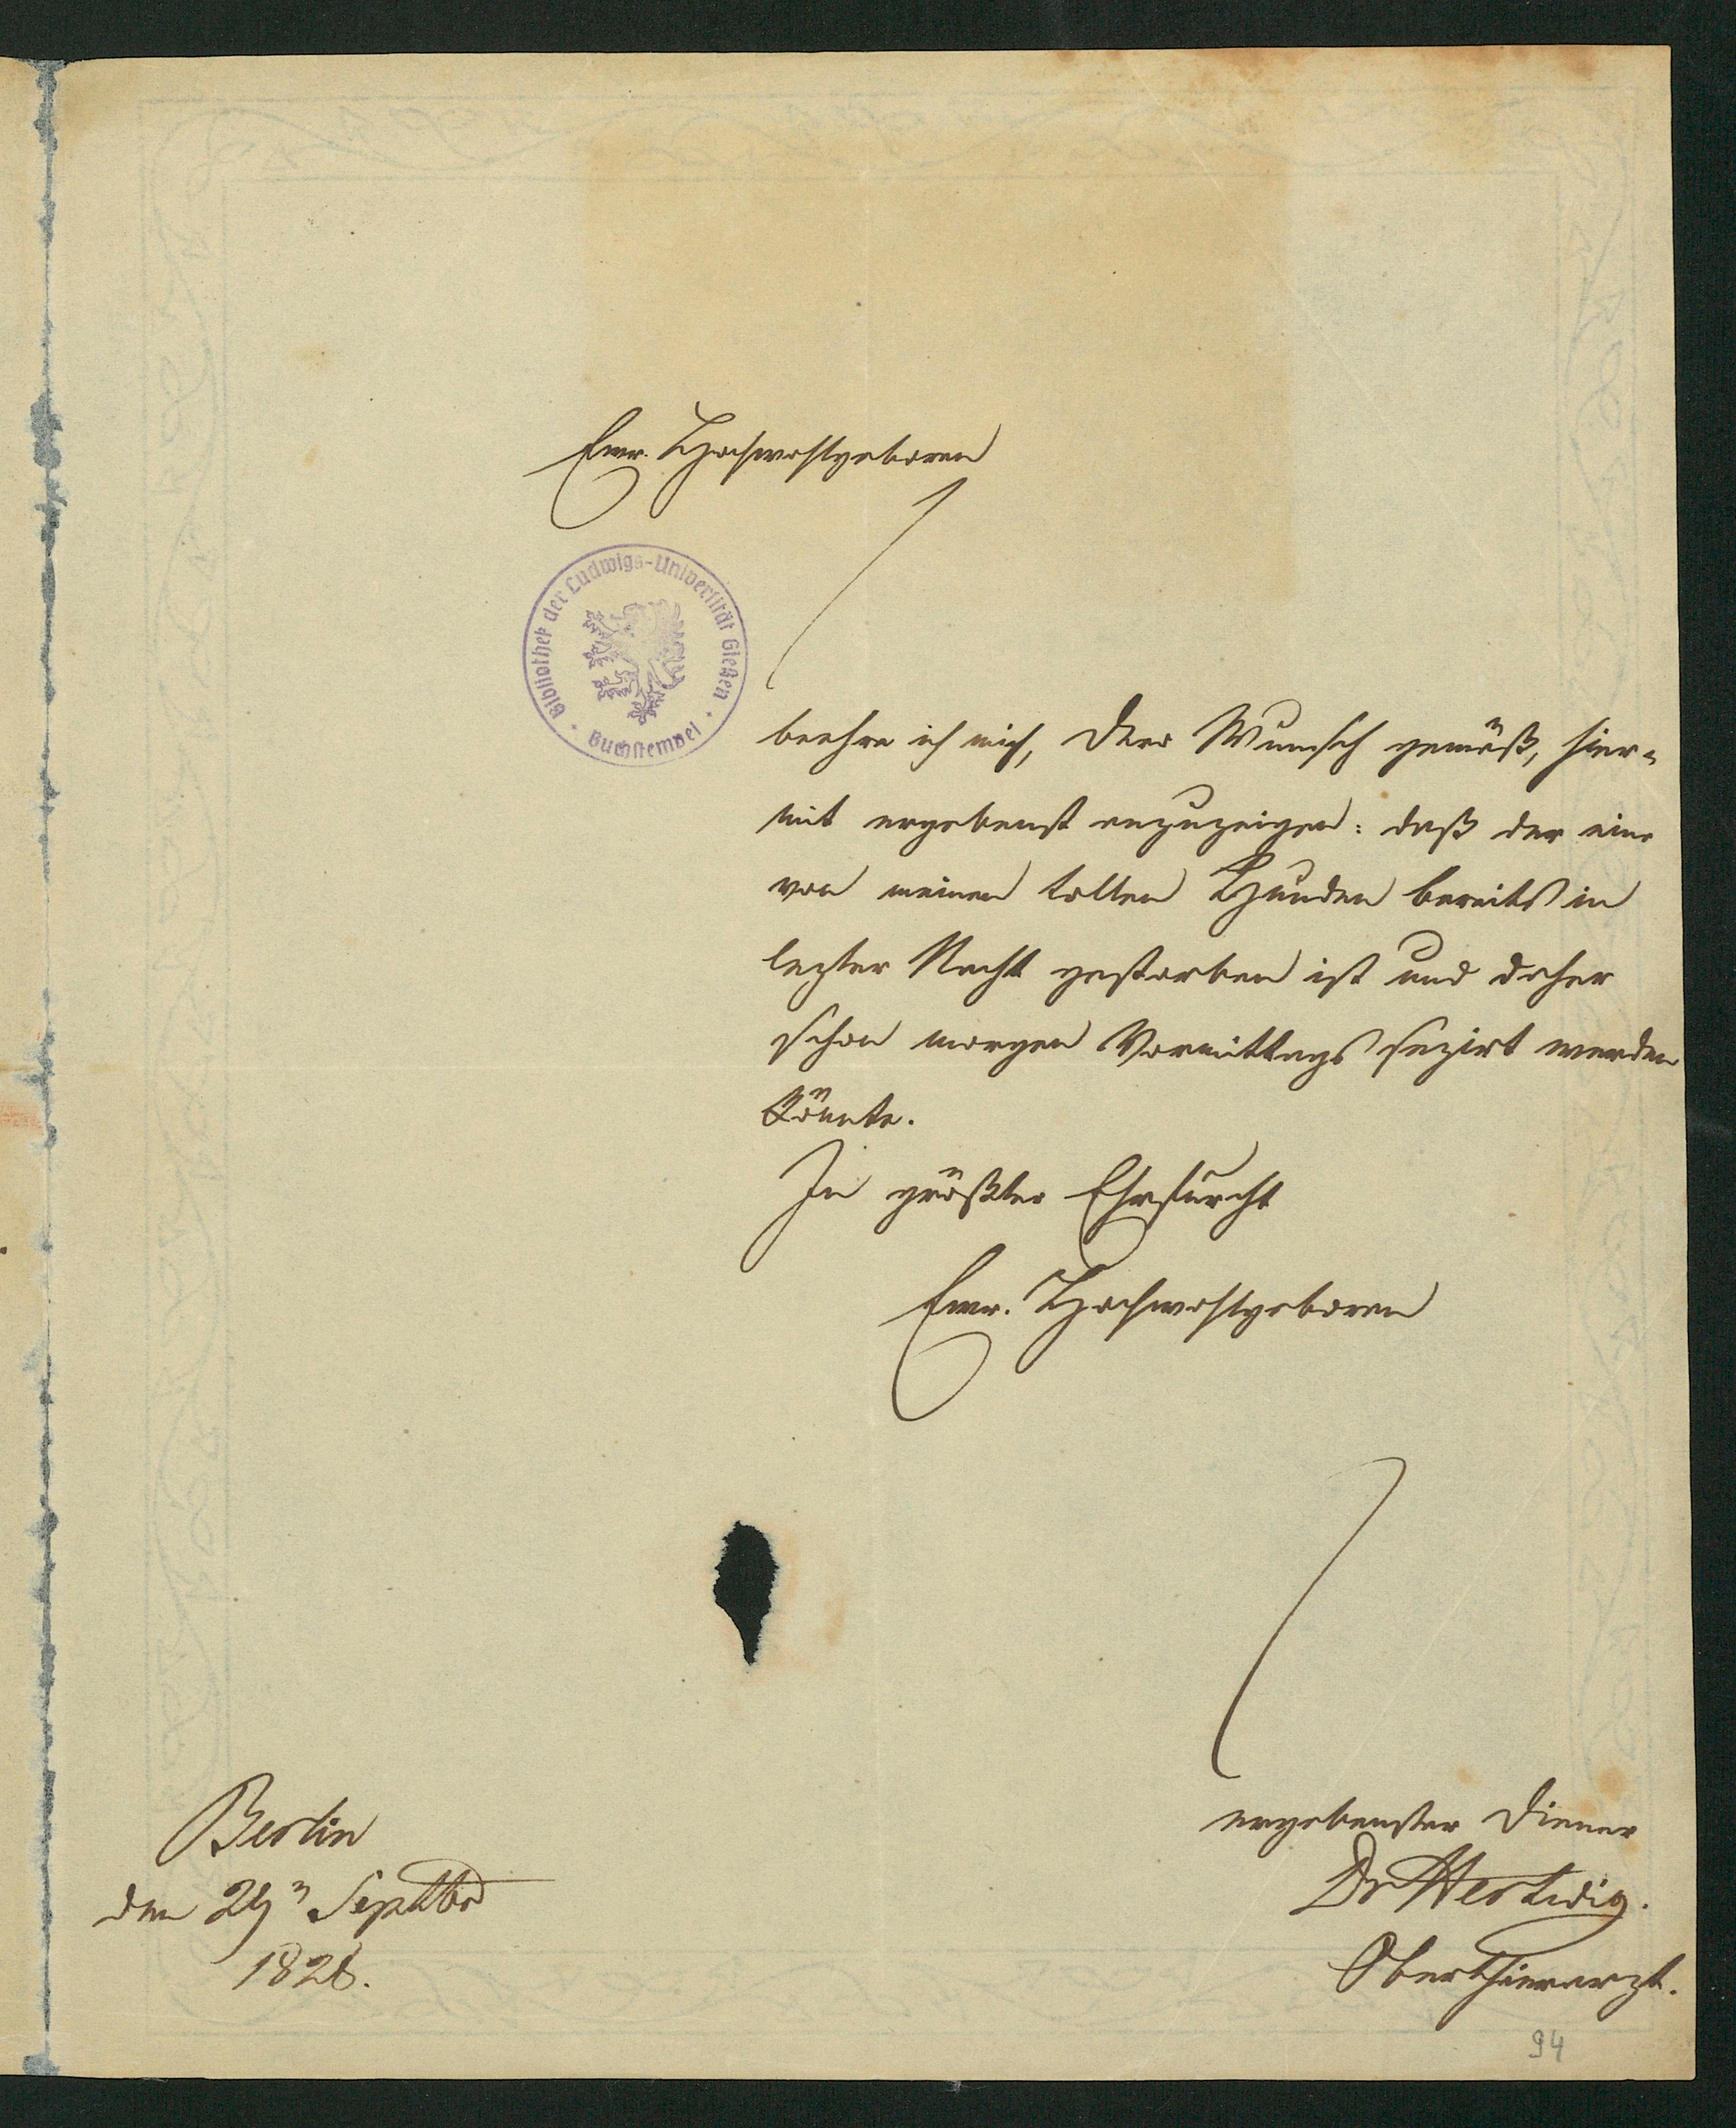 Ewr. Hochwohlgeboren
Bibliothek der Ludwigs-Universität Gießen
Buchstempel
beehre ich mich, Dero Wunsch gemäß, hier-
mit ergebenst anzuzeigen: daß der eine
von meinen tollen Hunden bereits in
lezter Nacht gestorben ist und daher
schon morgen Vormittags sezirt werden
könnte.
In größter Ehrfurcht
Ewr. Hochwohlgeboren
ergebenster Diener
Berlin
Dr Hertwig.
den Septbr
Oberthierarzt.
1828.
94